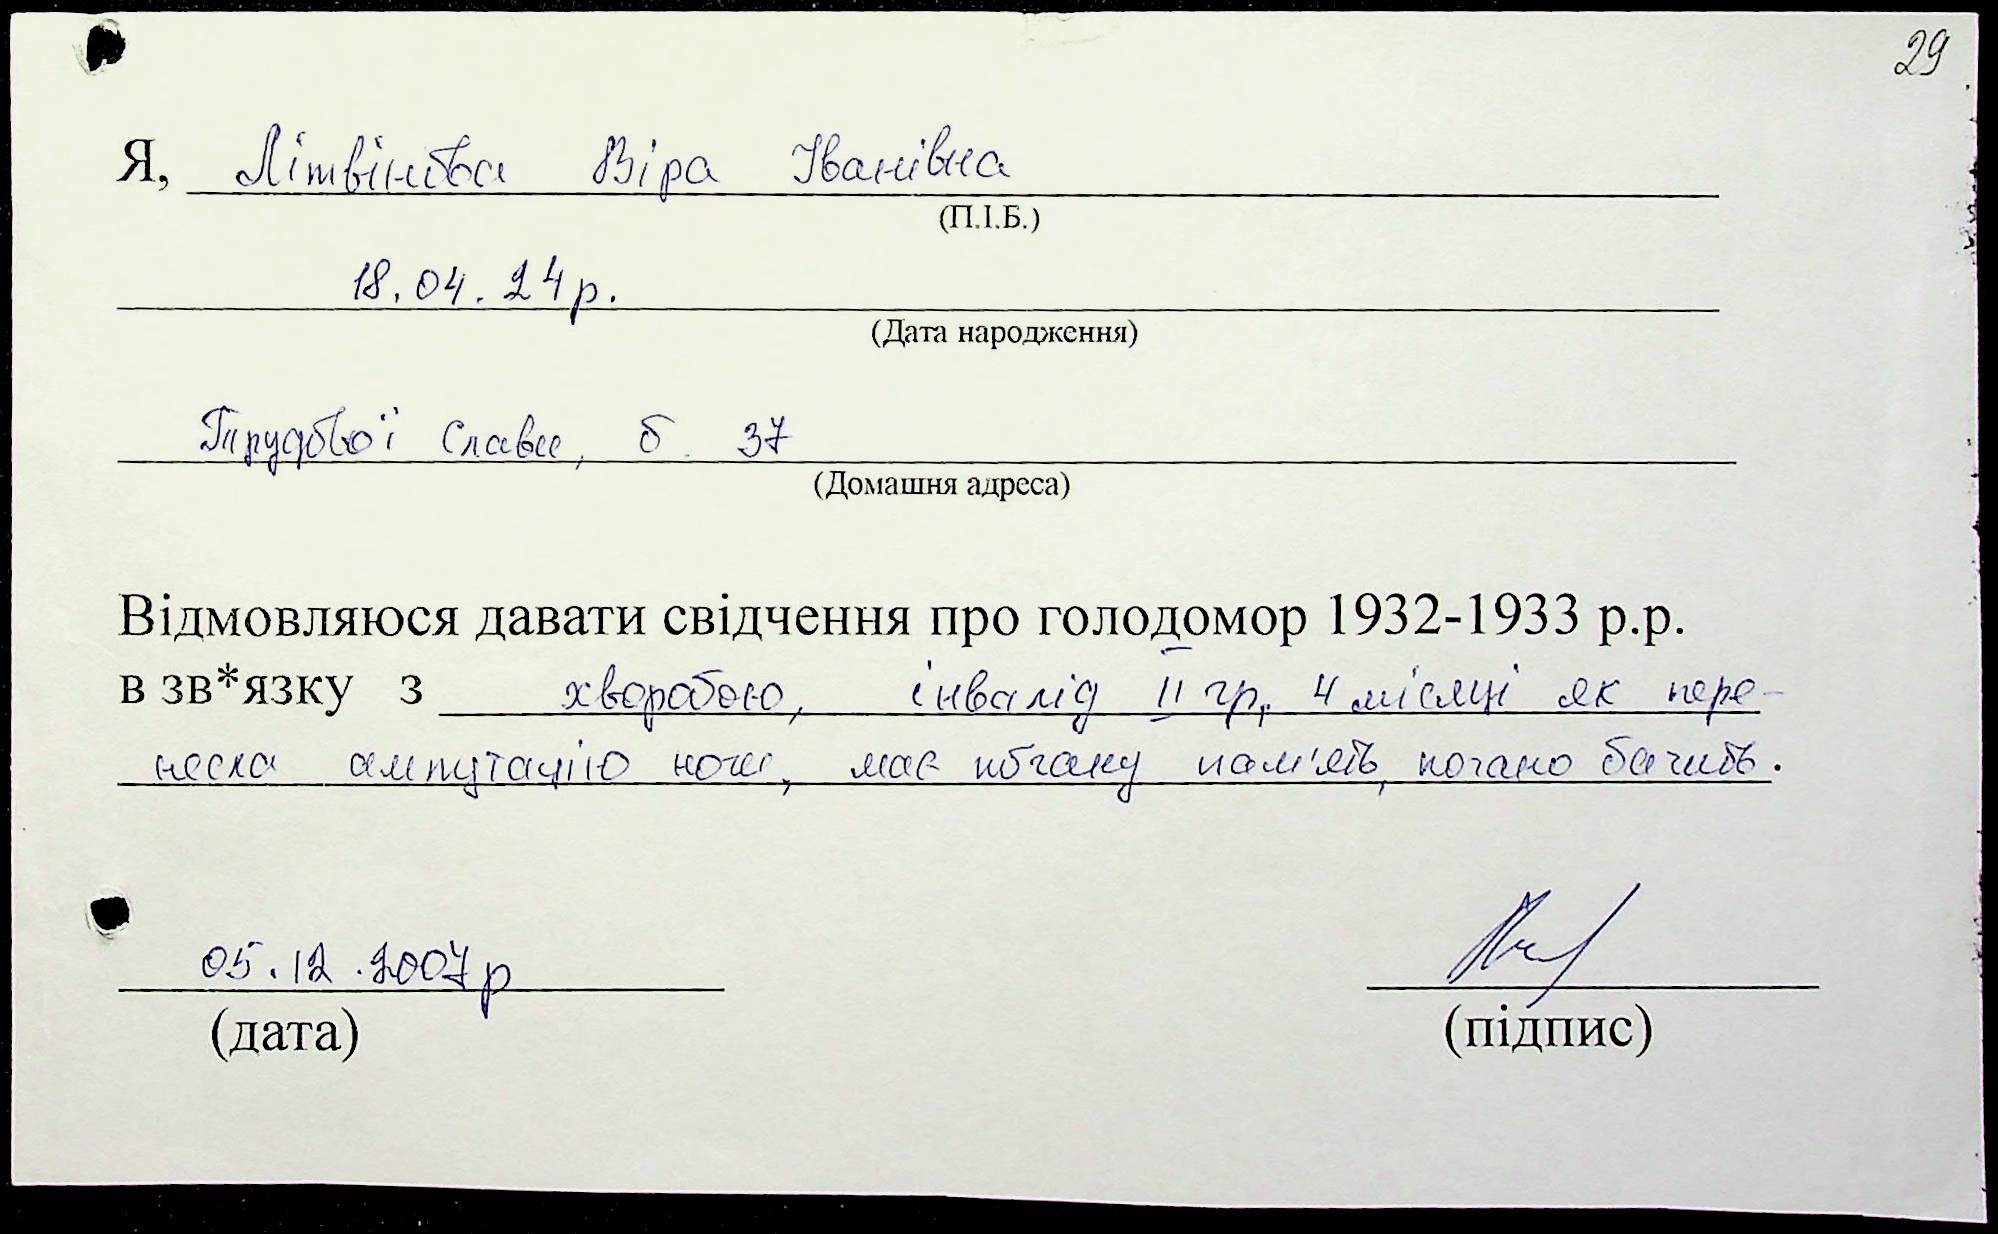 29
Я, Літвінова Віра Іванівна
(П.І.Б.)
18.04.24р.
(Дата народження)
Трудової Слави, б. 37
(Домашня адреса)
Відмовляюся давати свідчення про голодомор 1932-1933 р.р.
в зв*язку з хворобою, інвалід ІІ гр, 4 місяці як пере-
несла ампутацію ноги, має погану пам'ять, погано бачить.
05.12.2007р
(дата)
(підпис)